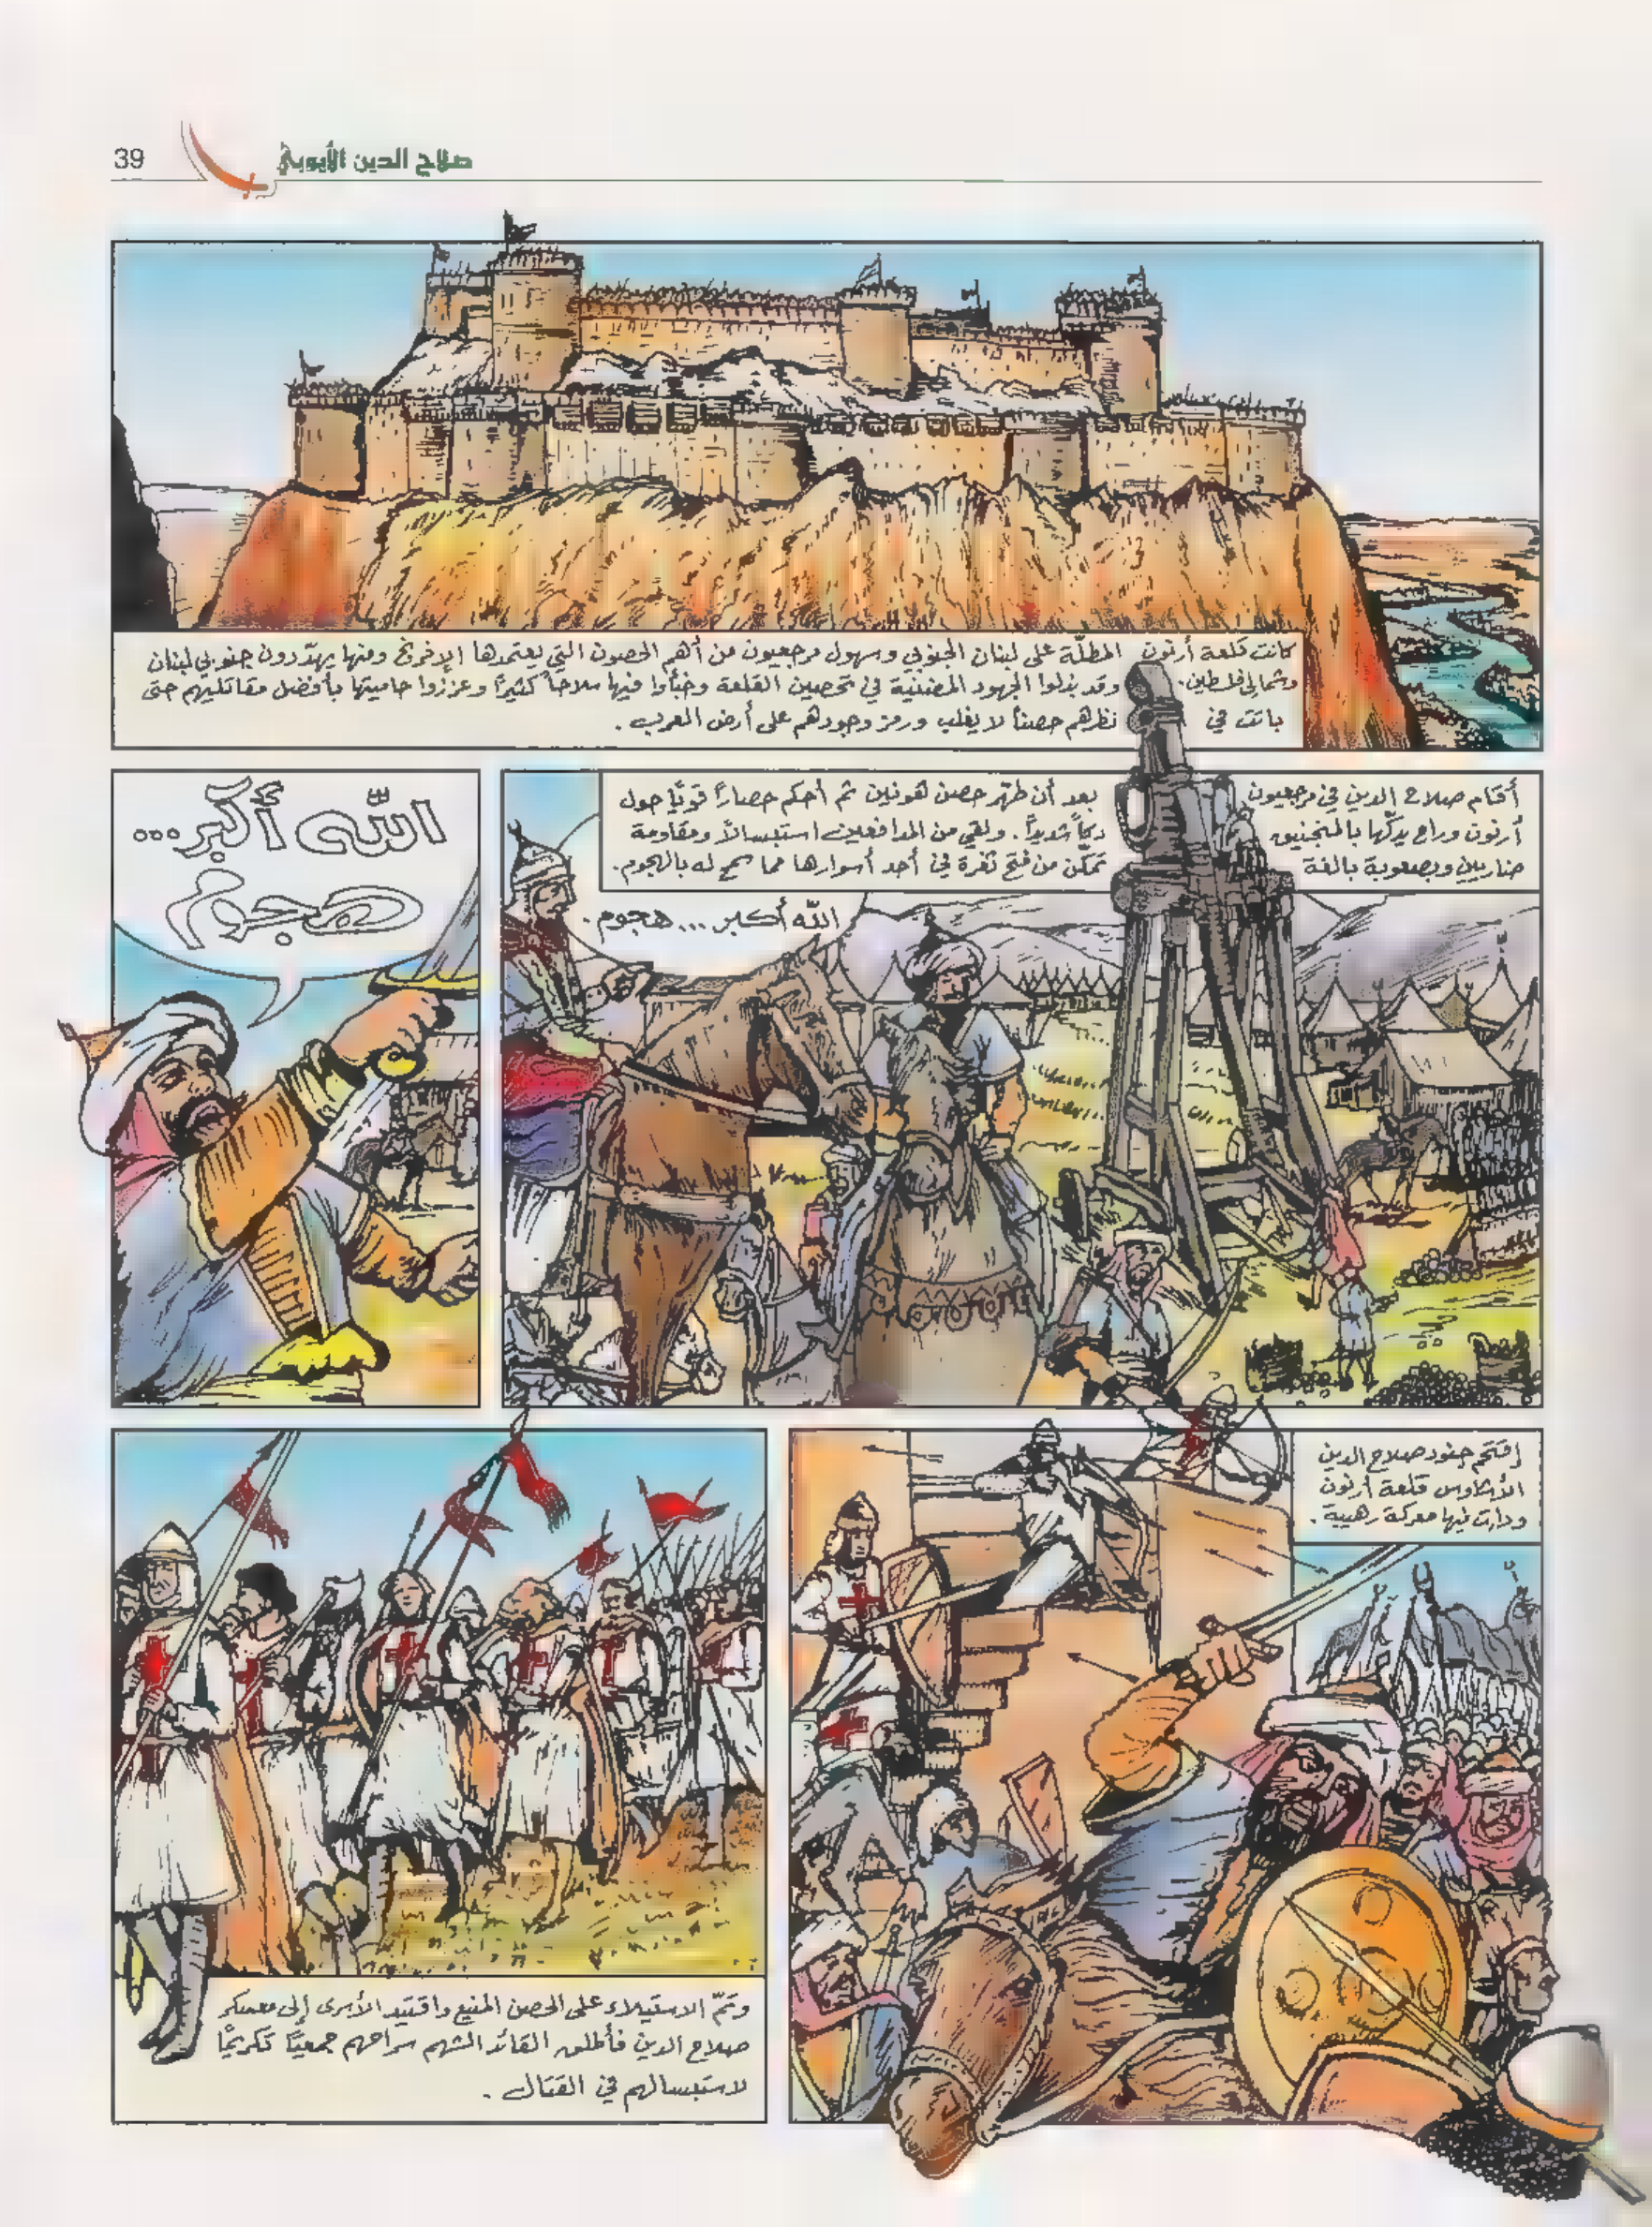 39
صلاح الدين الأيوبي
كانت قلعة أرنون المطلّة على لبنان الجنوبي وسهول مرجعيون من أهم الحصون التي يعتمدها الإفرنج ومنها يهدّدون جنوبي لبنان
وشمالي فلسطين. وقد بذلوا الجهود المضنيّة في تحصين القلعة وخبّأوا فيها سلاحاً كثيرًا وعززوا حاميتها بأفضل مقاتليهم حتى
باتت في نظرهم حصناً لا يغلب ورمز وجودهم على أرض العرب.
أقام صلاح الدين في مرجعيون بعد أن طهّر حصن هونين ثم أحكم حصارًا قويًا حول
أرنون وراح يدكّها بالمنجنيق دكاً شديدًا. ولقي من المدافعين استبسالاً ومقاومة
ضاريين وبصعوبة بالغة تمكّن من فتح ثغرة في أحد أسوارها مما سمح له بالهجوم.
الله أكبر... هجوم.
الله أكبر...
هجوم
إقتحم جنود صلاح الدين
الأشاوس قلعة أرنون
ودارت فيها معركة رهيبة.
وتمّ الاستيلاء على الحصن المنيع واقتيد الأسرى إلى معسكر
صلاح الدين فأطلق القائد الشهم سراحهم جميعًا تكريمًا
لاستبسالهم في القتال.